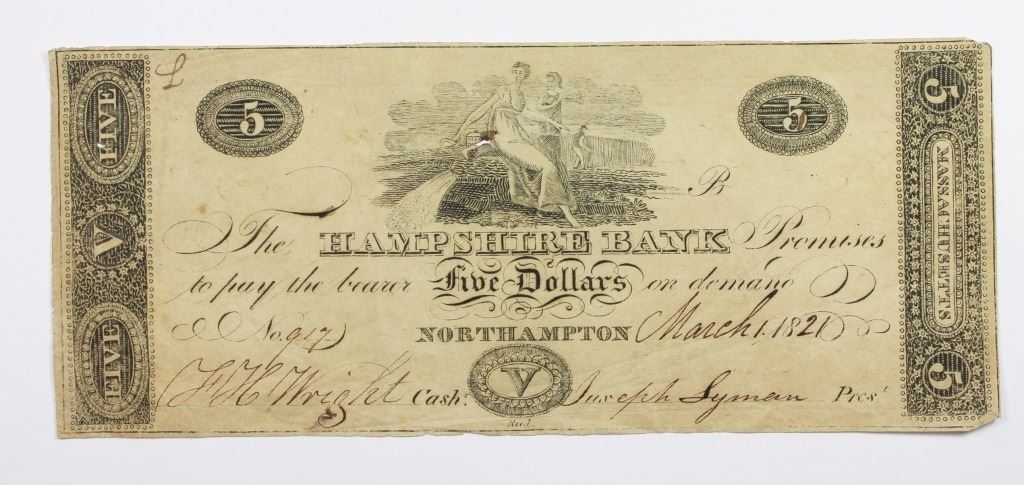 L
5
5
FIVE
V
FIVE
5
MASSACHUSETTS
5
B
The HAMPSHIRE BANK Promises
to pay the bearer Five Dollars on demand
No. 917 NORTHAMPTON March 1. 1821
F H Wright Cashr. V Joseph Lyman Prest
Reed.